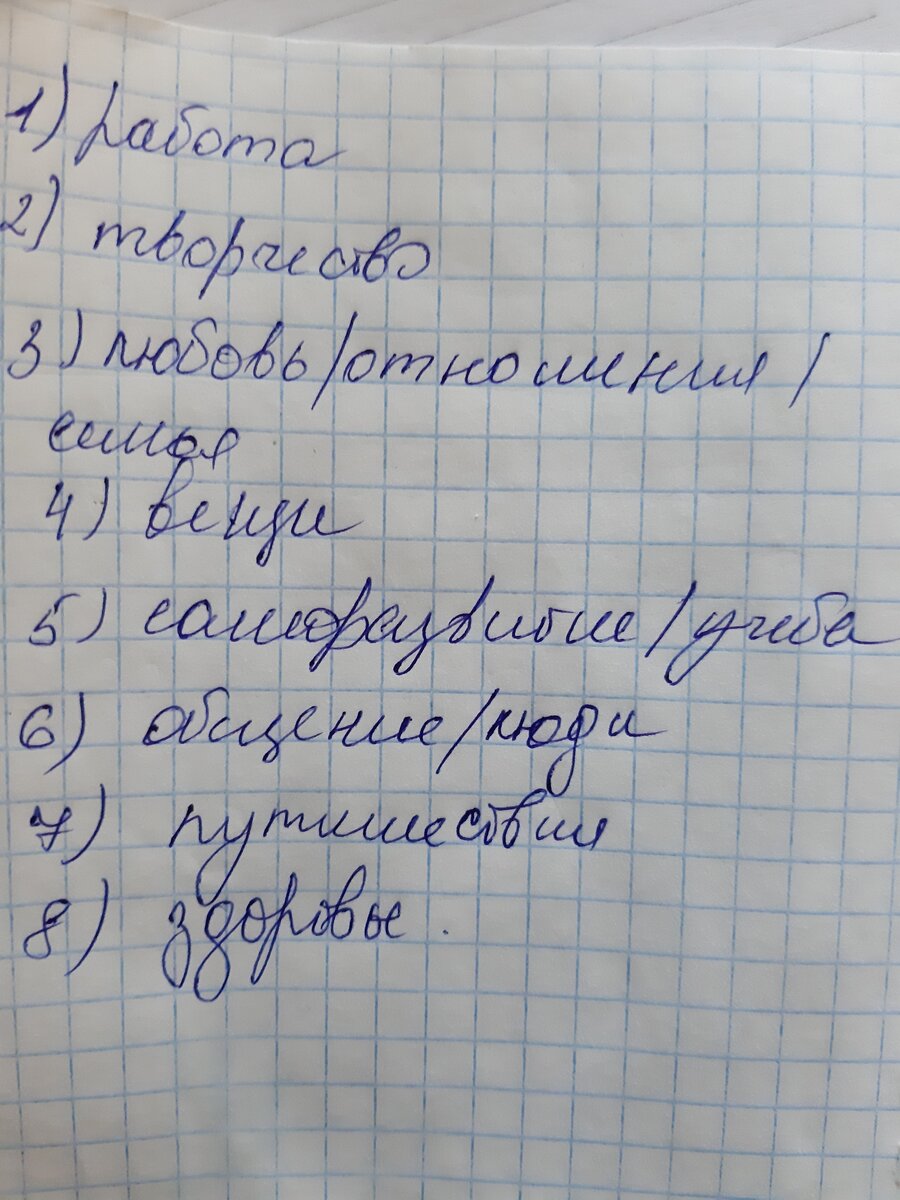 1) работа
2) творчество
3) любовь/отношения/
семья
4) вещи
5) саморазвитие/учеба
6) общение/люди
7) путешествия
8) здоровье.